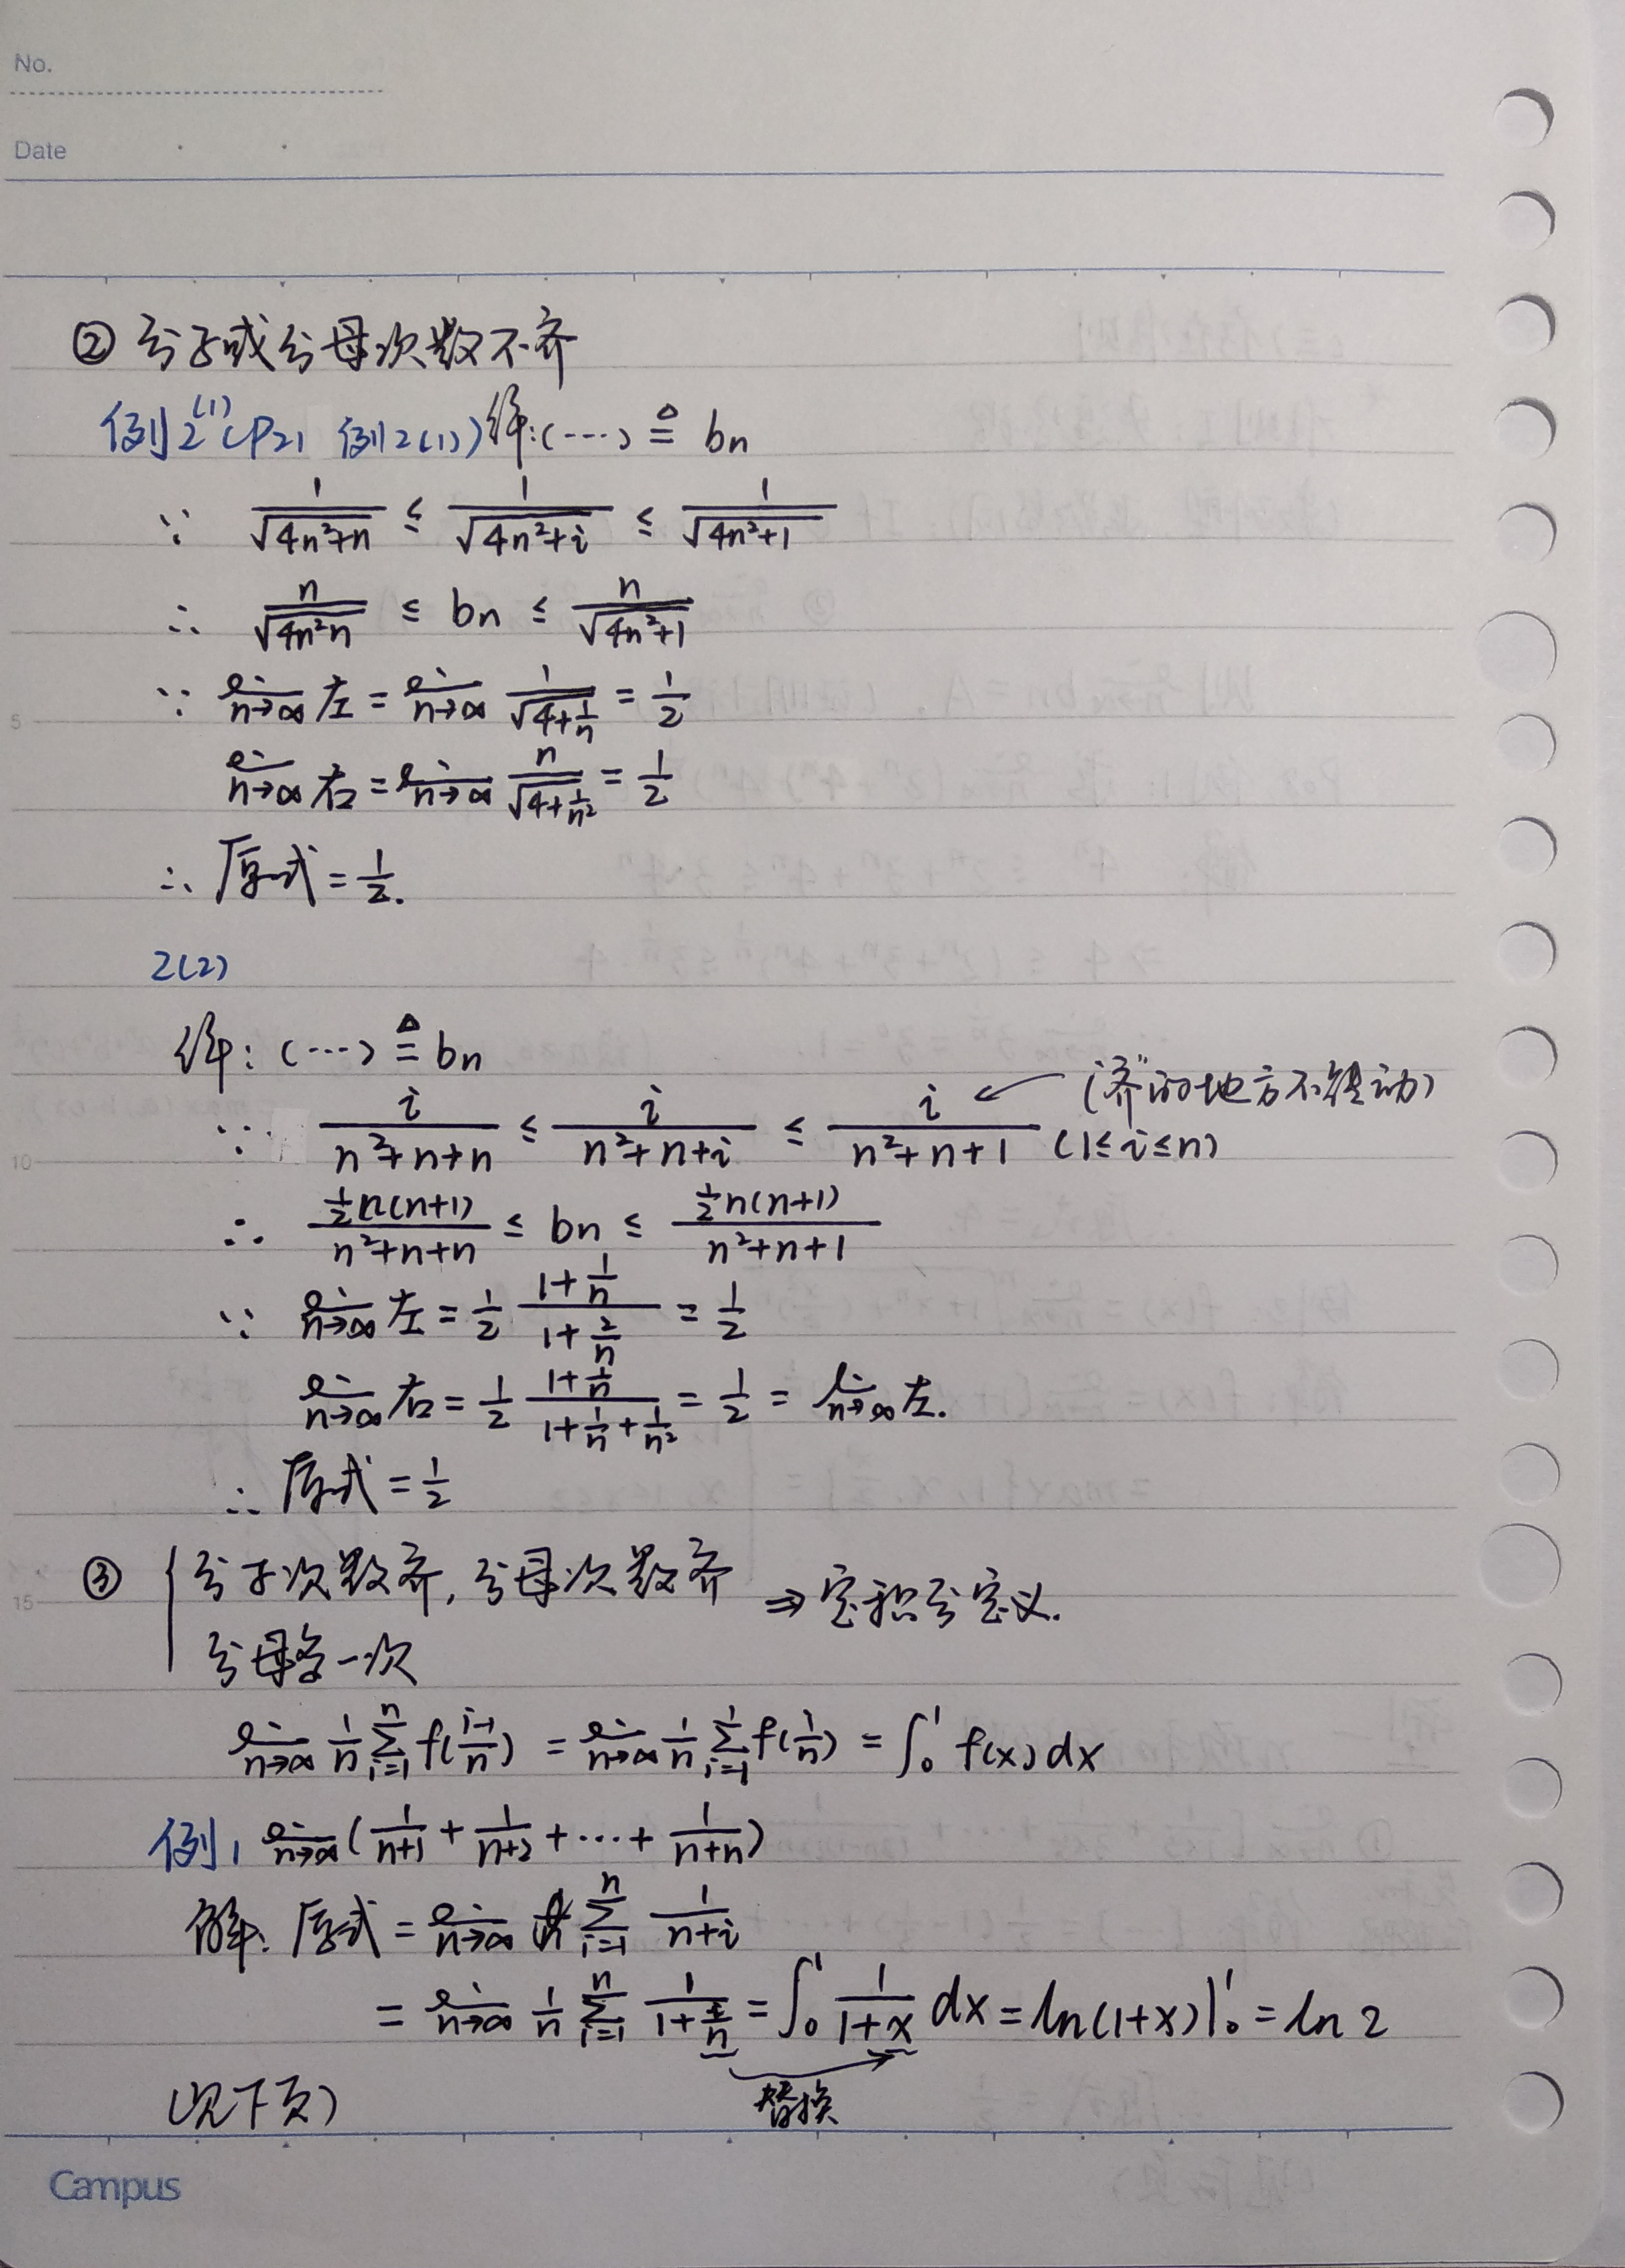 No.
Date
② 分子或分母次数不齐
例2(1) (P21 例2(1)) 解:(⋯) ≜ bn
∵ 1/√(4n²+n) ≤ 1/√(4n²+i) ≤ 1/√(4n²+1)
∴ n/√(4n²n) ≤ bn ≤ n/√(4n²+1)
∵ lim n→∞ 左 = lim n→∞ 1/√(4+1/n) = 1/2
lim n→∞ 右 = lim n→∞ n/√(4+1/n²) = 1/2
∴ 原式 = 1/2.
2(2)
解: (⋯) ≜ bn
∵ i/(n²+n+n) ≤ i/(n²+n+i) ≤ i/(n²+n+1) (1≤i≤n) ← (“齐”的地方不能动)
∴ ½n(n+1)/(n²+n+n) ≤ bn ≤ ½n(n+1)/(n²+n+1)
∵ lim n→∞ 左 = 1/2 (1+1/n)/(1+2/n) = 1/2
lim n→∞ 右 = 1/2 (1+1/n)/(1+1/n+1/n²) = 1/2 = lim n→∞ 左.
∴ 原式 = 1/2
③ { 分子次数齐, 分母次数齐 ⇒ 定积分定义.
分母多一次
lim n→∞ 1/n Σ i=1 n f((i-1)/n) = lim n→∞ 1/n Σ i=1 f(i/n) = ∫₀¹ f(x) dx
例1 lim n→∞ (1/(n+1) + 1/(n+2) + ⋯ + 1/(n+n))
解: 原式 = lim n→∞ Σ i=1 n 1/(n+i)
= lim n→∞ 1/n Σ i=1 n 1/(1+i/n) = ∫₀¹ 1/(1+x) dx = ln(1+x)|₀¹ = ln 2
替换
(见下页)
5
10
15
Campus